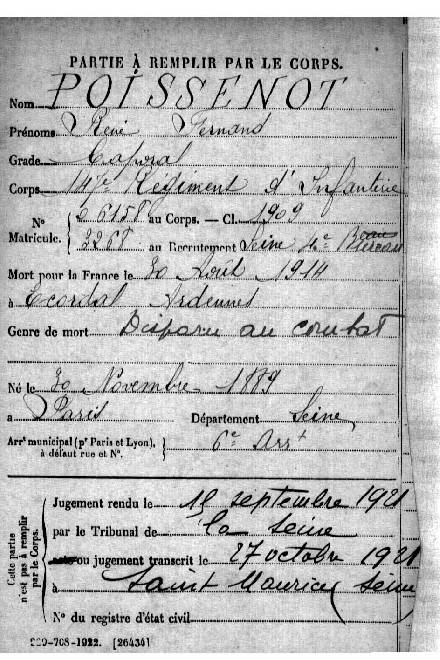 PARTIE À REMPLIR PAR LE CORPS.
Nom POISSENOT
Prénoms René Fernand
Grade Caporal
Corps 147e Régiment d'Infanterie
N° Matricule. 06158 au Corps. — Cl. 1909
3268 au Recrutement Seine 4e Bureau
Mort pour la France le 30 Août 1914
à Ecordal Ardennes
Genre de mort Disparu au combat
Né le 30 Novembre 1889
a Paris Département Seine
Arrt municipal (pr Paris et Lyon), à défaut rue et N°. 6e Arrt
Cette partie n'est pas à remplir par le Corps.
Jugement rendu le 15 septembre 1921
par le Tribunal de la Seine
ou jugement transcrit le 27 octobre 1921
à Saint Maurice (Seine)
N° du registre d'état civil
-708-1922. [26434]